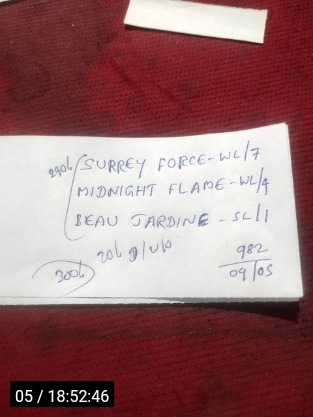 280h SURREY FORCE - WL/7
MIDNIGHT FLAME - WL/4
BEAU JARDINE - SL/1
20h D/U/P
300h
982
09/05
05 / 18:52:46